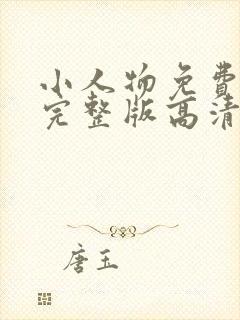 小人物免費
完整版高清
唐玉